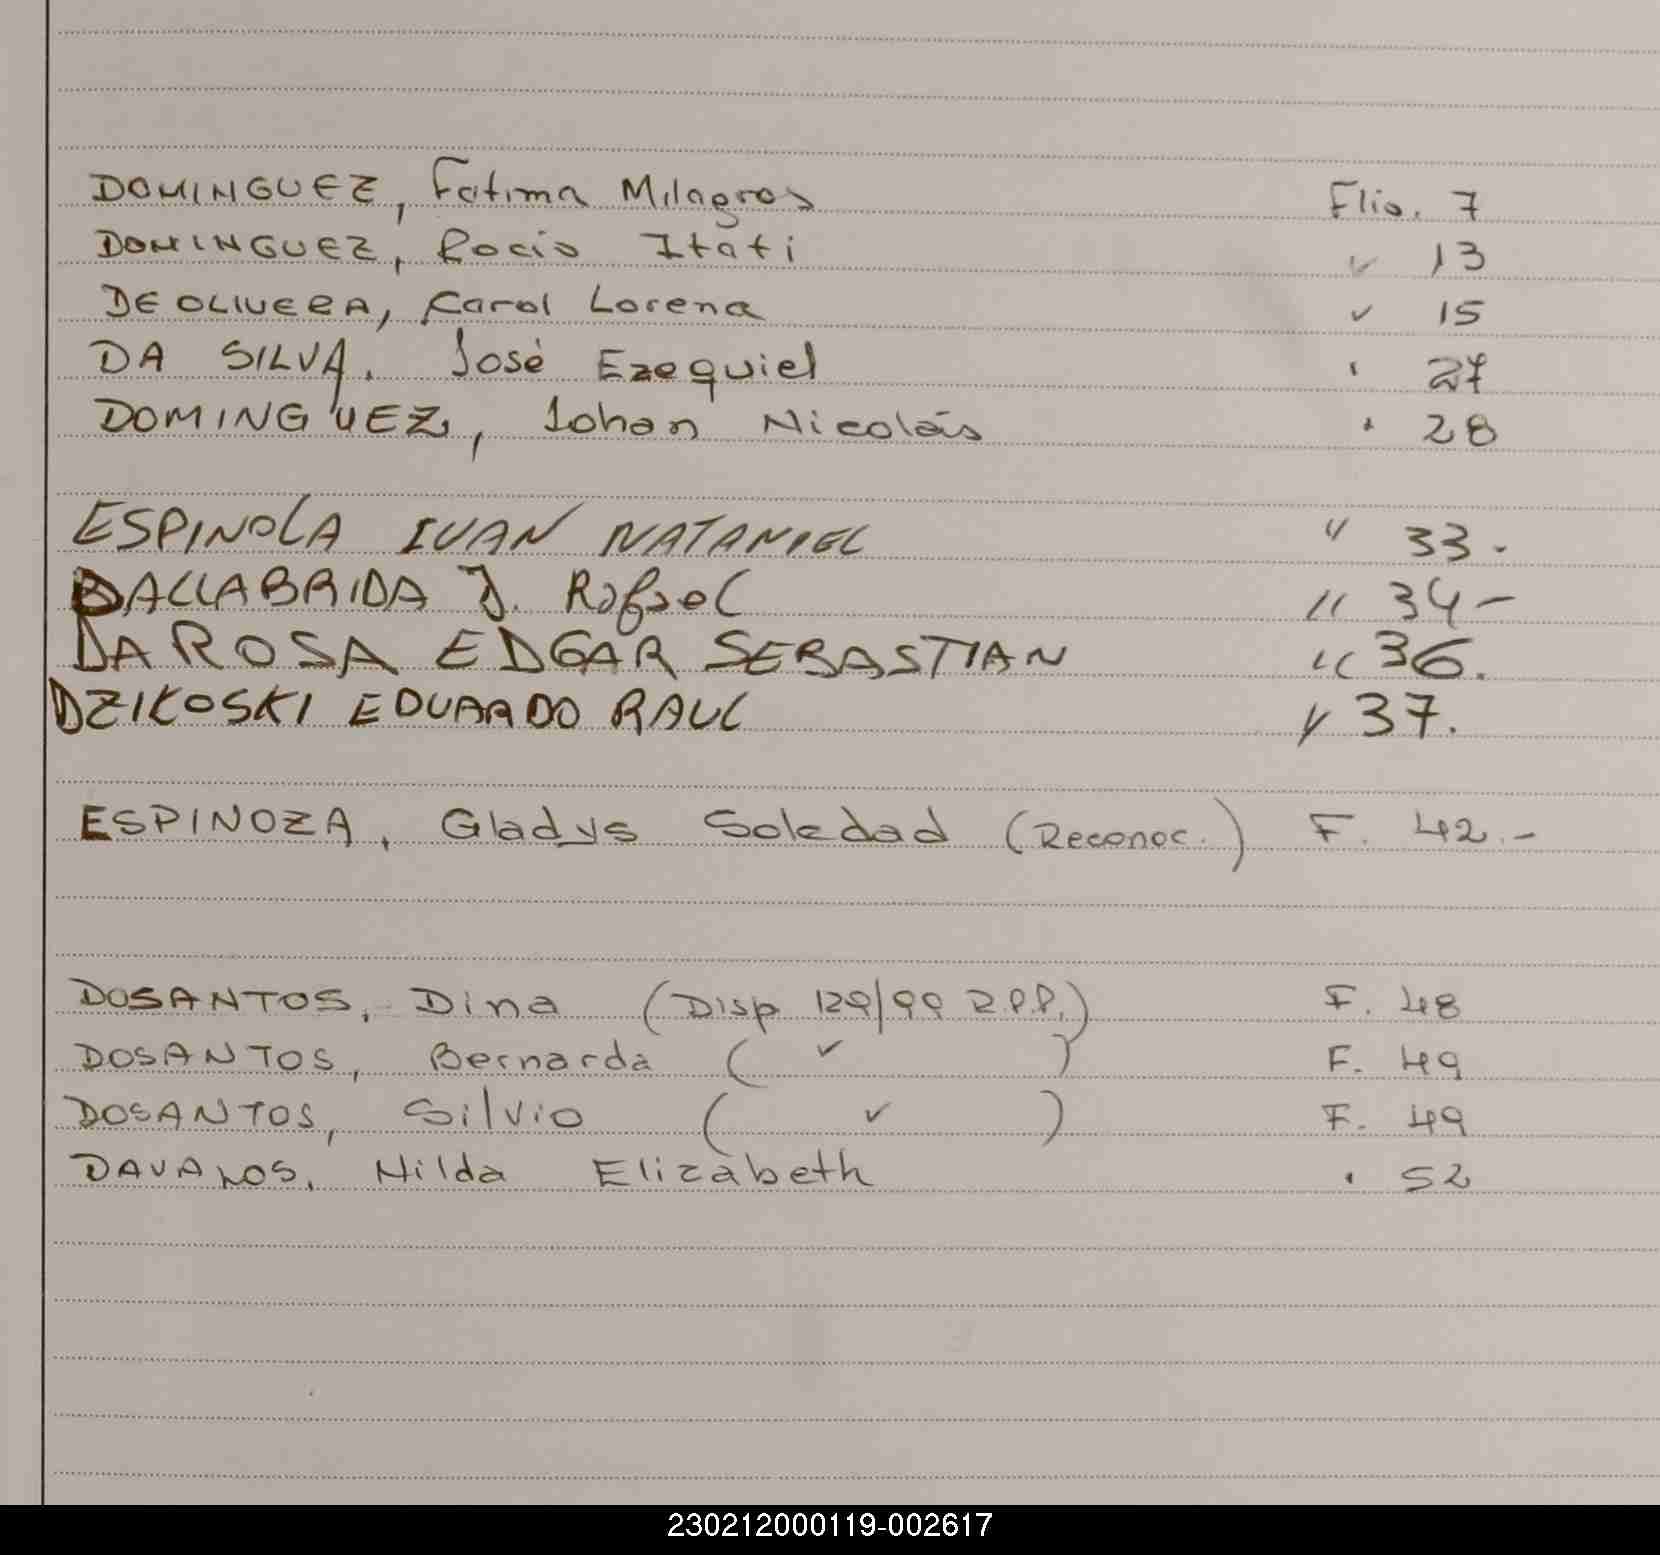 DOMINGUEZ, Fatima Milagros Flio. 7
DOMINGUEZ, Rocio Itati " 13
DE OLIVERA, Karol Lorena " 15
DA SILVA. José Ezequiel " 27
DOMINGUEZ, Johan Nicolás " 28
ESPINOLA IVAN NATANIEL " 33.
DALLABRIDA J. Rafael " 34-
DA ROSA EDGAR SEBASTIAN " 36.
DZIKOSKI EDUARDO RAUL " 37.
ESPINOZA, Gladys Soledad (Reconoc.) F. 42.-
DOSANTOS, Dina (Disp 129/99 R.P.P.) F. 48
DOSANTOS, Bernarda ( " ) F. 49
DOSANTOS, Silvio ( " ) F. 49
DAVALOS, Hilda Elizabeth " 52
230212000119-002617